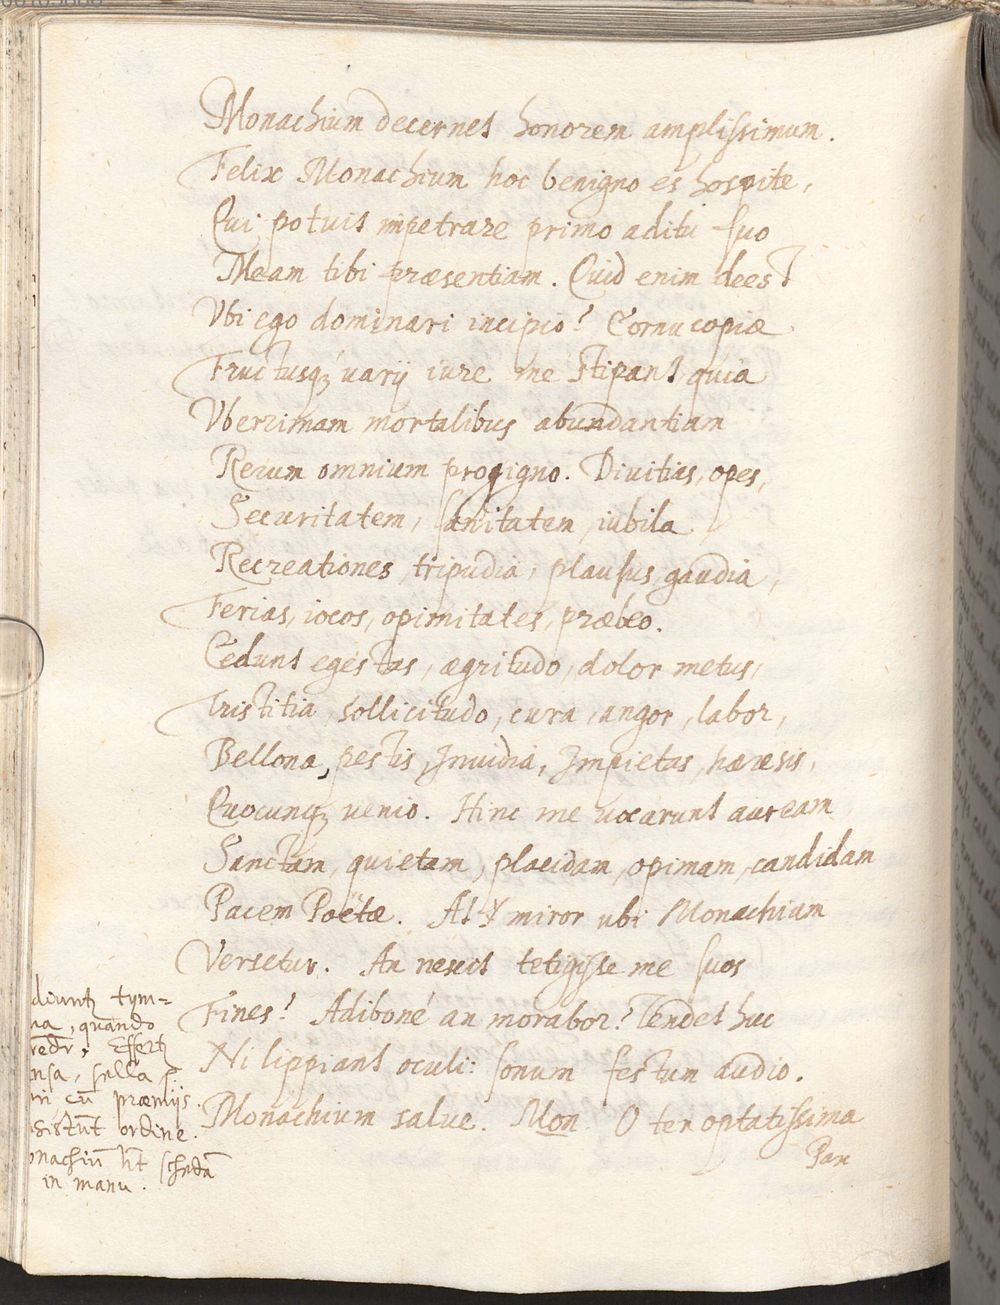 Monachium decernet honorem amplissimum.
Felix Monachium hoc benigno es hospite,
Qui potuit impetrare primo aditu suo
Meam tibi præsentiam. Quid enim deest
Vbi ego dominari incipio? Cornucopiæ
Fructusq; varij iure me stipant quia
Vberrimam mortalibus abundantiam
Rerum omnium progigno. Divitias, opes,
Securitatem, sanitatem, iubila
Recreationes, tripudia, plausus, gaudia,
Ferias, iocos, opimitates, præbeo.
Cedunt egestas, ægritudo, dolor metus,
Tristitia, sollicitudo, cura, angor, labor,
Bellona, pestis, Invidia, Impietas, hæresis,
Quocunq; venio. Hinc me vocarunt auream
Sanctam, quietam, placidam, opimam, candidam
Pacem Poëtæ. At miror ubi Monachium
Versetur. An nescit tetigisse me suos
Fines? Adiboné an morabor? Tendet huc
Ni lippiant oculi: sonum festum audio.
Monachium salve. Mon. O ter optatissima
Pax
diunt tym=
na, quando
Effert
nsa, sella
in cū præmijs.
sistūt ordine.
onachiū ht schedā
in manu.